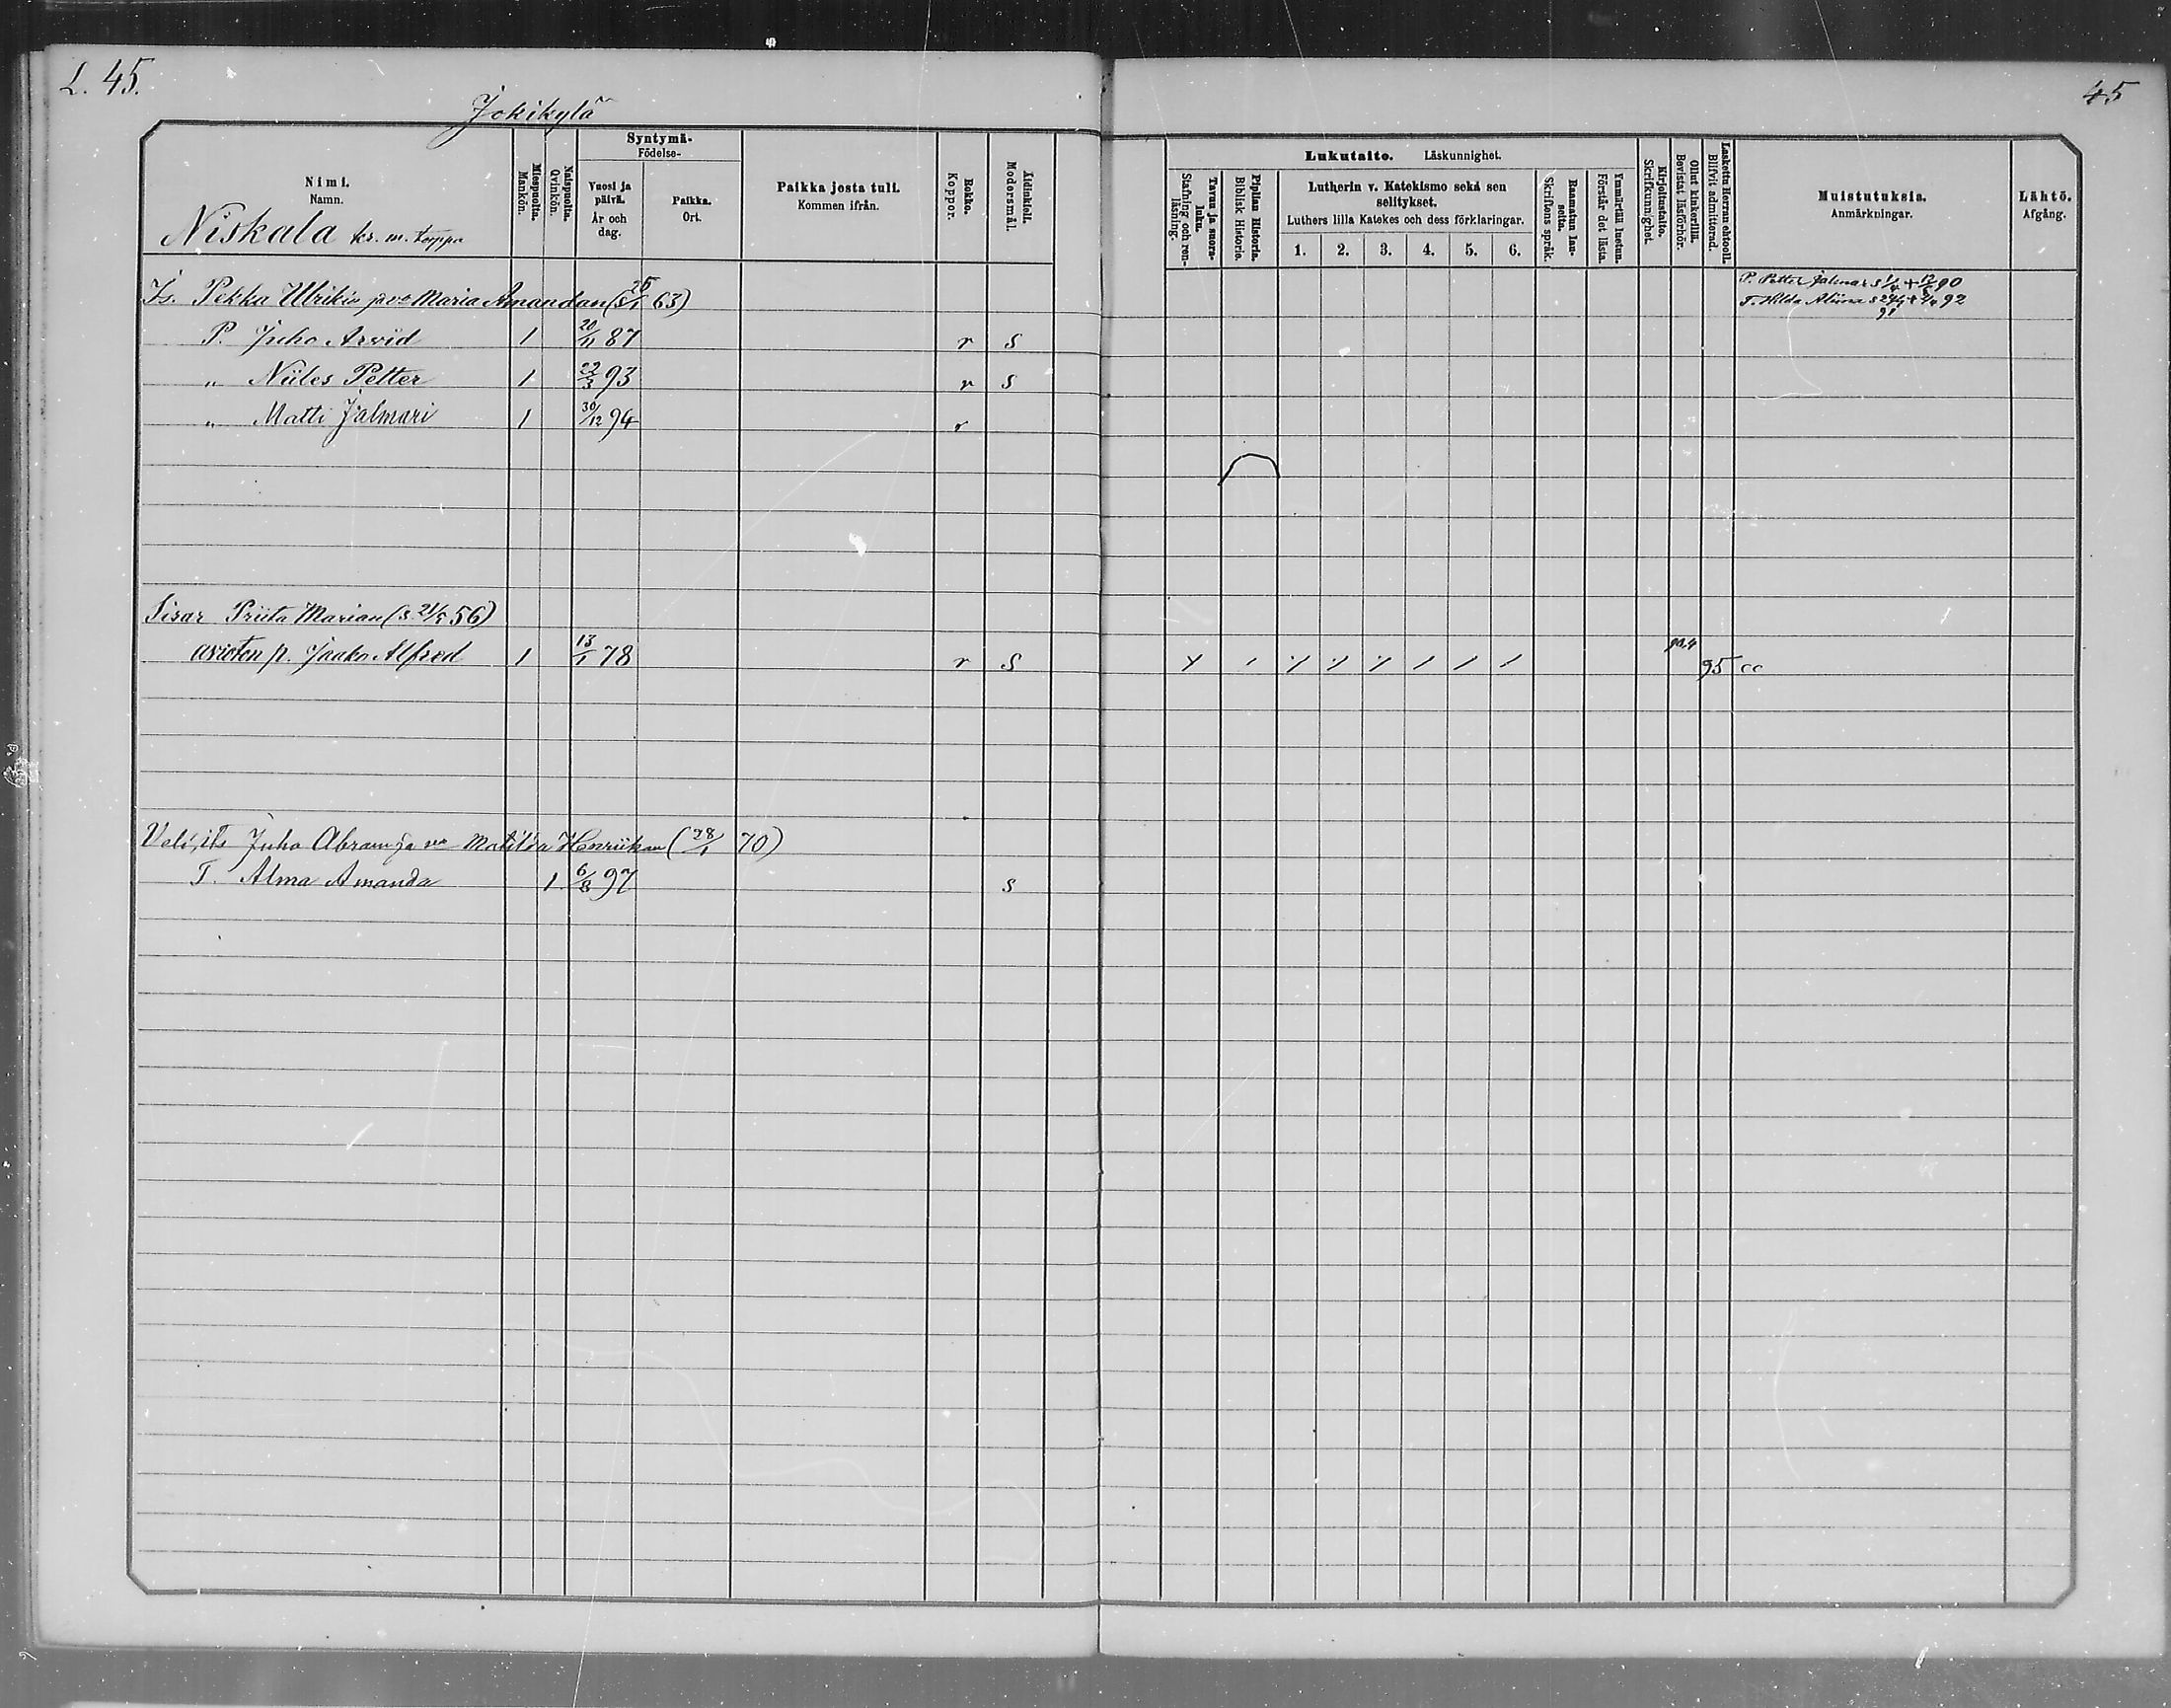 L. 45.
45
Jokikylä
Nimi.
Namn.
Niskala kr. m. torppa
Miespuolia.
Mankön.
Naispuolia.
Qvinkön.
Syntymä-
Födelse-
Vuosi ja päivä.
År och dag.
Paikka.
Ort.
Paikka josta tuli.
Kommen ifrån.
Rokko.
Koppor.
Äidinkieli.
Modersmål.
Lukutaito. Läskunnighet.
Tavuu ja suora-luku.
Stafning och ren-läsning.
Piplian Historia.
Biblisk Historie.
Lutherin v. Katekismo sekä sen
selitykset.
Luthers lilla Katekes och dess förklaringar.
1. 2. 3. 4. 5. 6.
Raamatun lau-seita.
Skriftens språk.
Ymmärtää luetun.
Förstår det lästa.
Kirjoitustaito.
Skrifkunnighet.
Ollut kinkerillä.
Bevistat läsförhör.
Laskettu Herran ehtooll.
Blifvit admitterad.
Muistutuksia.
Anmärkningar.
Lähtö.
Afgång.
Is. Pekka Ulrikin ja vo Maria Amandan (s 25/1 63)
P. Petter Jalmar s 1/4 + 12/6 90
T. Hilda Aliina s 24/7 91 + 1/4 92
P. Juho Arvid 1 20/11 87 r s
" Niiles Petter 1 22/3 93 r s
" Matti Jalmari 1 30/12 94 r
Sisar Priita Marian (s. 21/5 56)
avioton p. Jaako Alfred 1 13/1 78 r s 95 cc
Veli, its Juho Abram ja vo Matilda Henriikan (28/1 70)
T. Alma Amanda 1 6/8 97 s